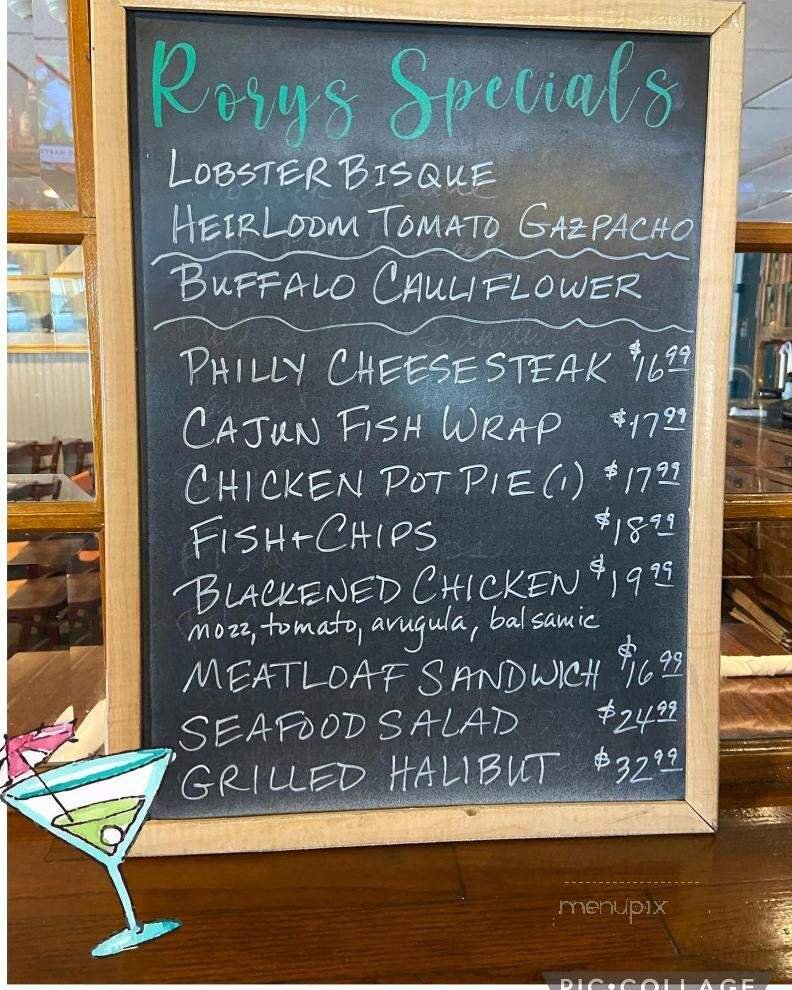 Rorys Specials
LOBSTER BISQUE
HEIRLOOM TOMATO GAZPACHO
BUFFALO CAULIFLOWER
PHILLY CHEESESTEAK $16.99
CAJUN FISH WRAP $17.99
CHICKEN POT PIE (1) $17.99
FISH+CHIPS $18.99
BLACKENED CHICKEN $19.99
mozz, tomato, arugula, balsamic
MEATLOAF SANDWICH $16.99
SEAFOOD SALAD $24.99
GRILLED HALIBUT $32.99
menupix
PIC•COLLAGE